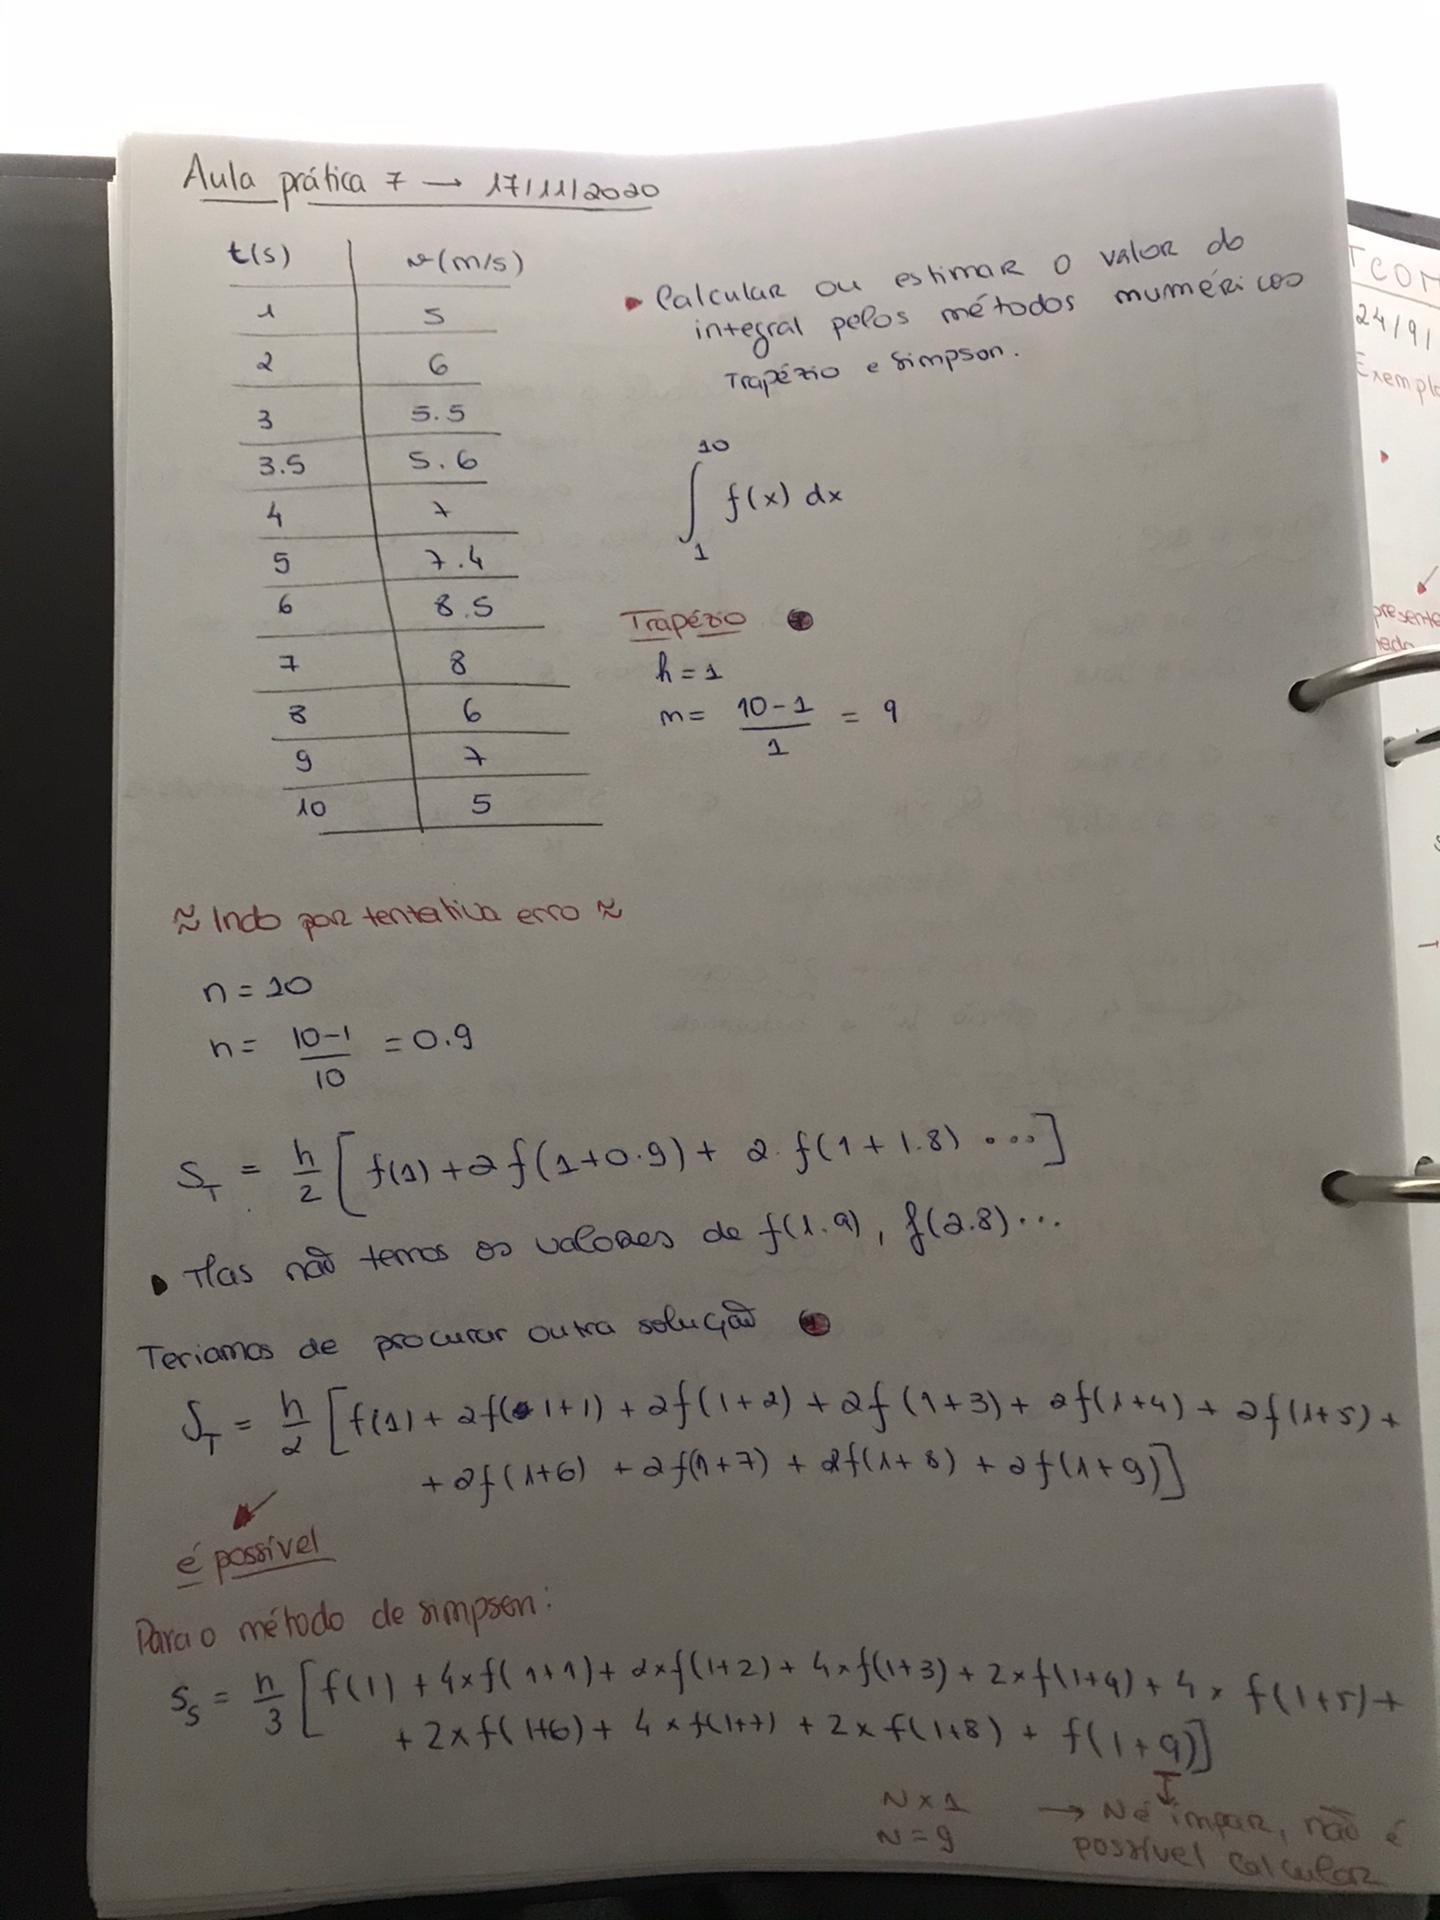 Aula prática 7 → 17/11/2020
t(s) v(m/s)
1 5
2 6
3 5.5
3.5 5.6
4 7
5 7.4
6 8.5
7 8
8 6
9 7
10 5
• Calcular ou estimar o valor do
integral pelos métodos numéricos
Trapézio e Simpson.
10
∫ f(x) dx
1
Trapézio
h = 1
m = (10-1)/1 = 9
≈ Indo por tentativa erro ≈
n = 10
h = (10-1)/10 = 0.9
S_T = h/2 [f(1) + 2f(1+0.9) + 2.f(1+1.8) ....]
• Mas não temos os valores de f(1.9), f(2.8)...
Teriamos de procurar outra solução
S_T = h/2 [f(1) + 2f(1+1) + 2f(1+2) + 2f(1+3) + 2f(1+4) + 2f(1+5) +
+ 2f(1+6) + 2f(1+7) + 2f(1+8) + 2f(1+9)]
é possível
Para o método de simpson:
S_S = h/3 [f(1) + 4×f(1+1) + 2×f(1+2) + 4×f(1+3) + 2×f(1+4) + 4× f(1+5) +
+ 2×f(1+6) + 4×f(1+7) + 2×f(1+8) + f(1+9)]
N×1 → N é impar, não é
N=9 possível calcular
TCOM
24/9/
Exempl